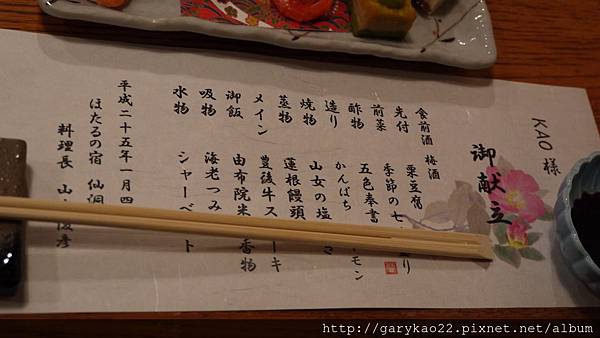 KAO 様
御献立
食前酒 梅酒
先付 栗豆腐
前菜 季節の七 り
酢物 五色奉書
造り かんぱち モン
焼物 山女の塩
蒸物 蓮根饅頭
メイン 豊後牛ステーキ
御飯 由布院米 香物
吸物 海老つみ
水物 シャーベット
平成二十五年一月四
ほたるの宿 仙洞
料理長 山 俊彦
http://garykao22.pixnet.net/album